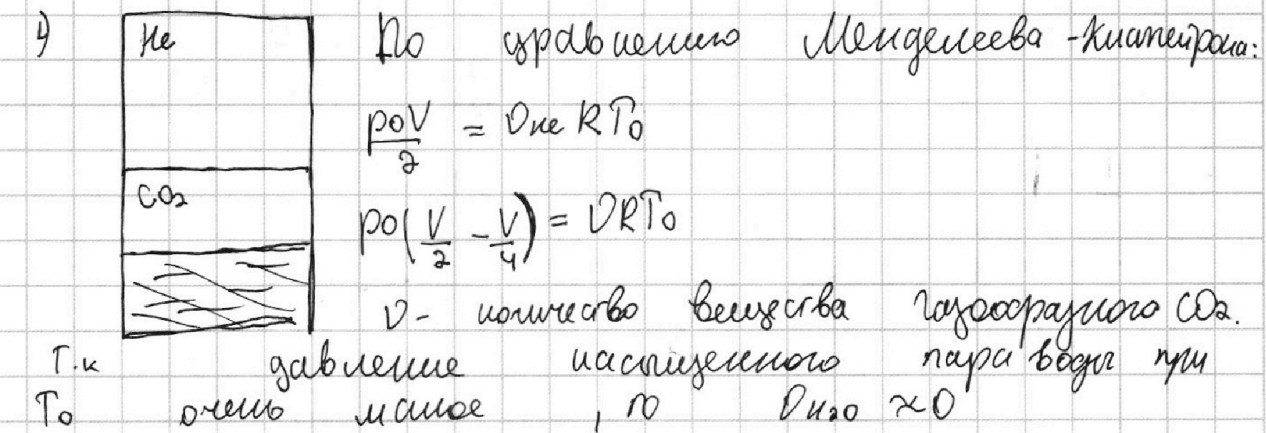 1) He По уравнению Менделеева-Клапейрона:
p0V/2 = νHe RT0
CO2
p0(V/2 - V/4) = νRT0
ν- количество вещества газообразного CO2.
Т.к давление насыщенного пара воды при
T0 очень малое, то νH2O ≈0